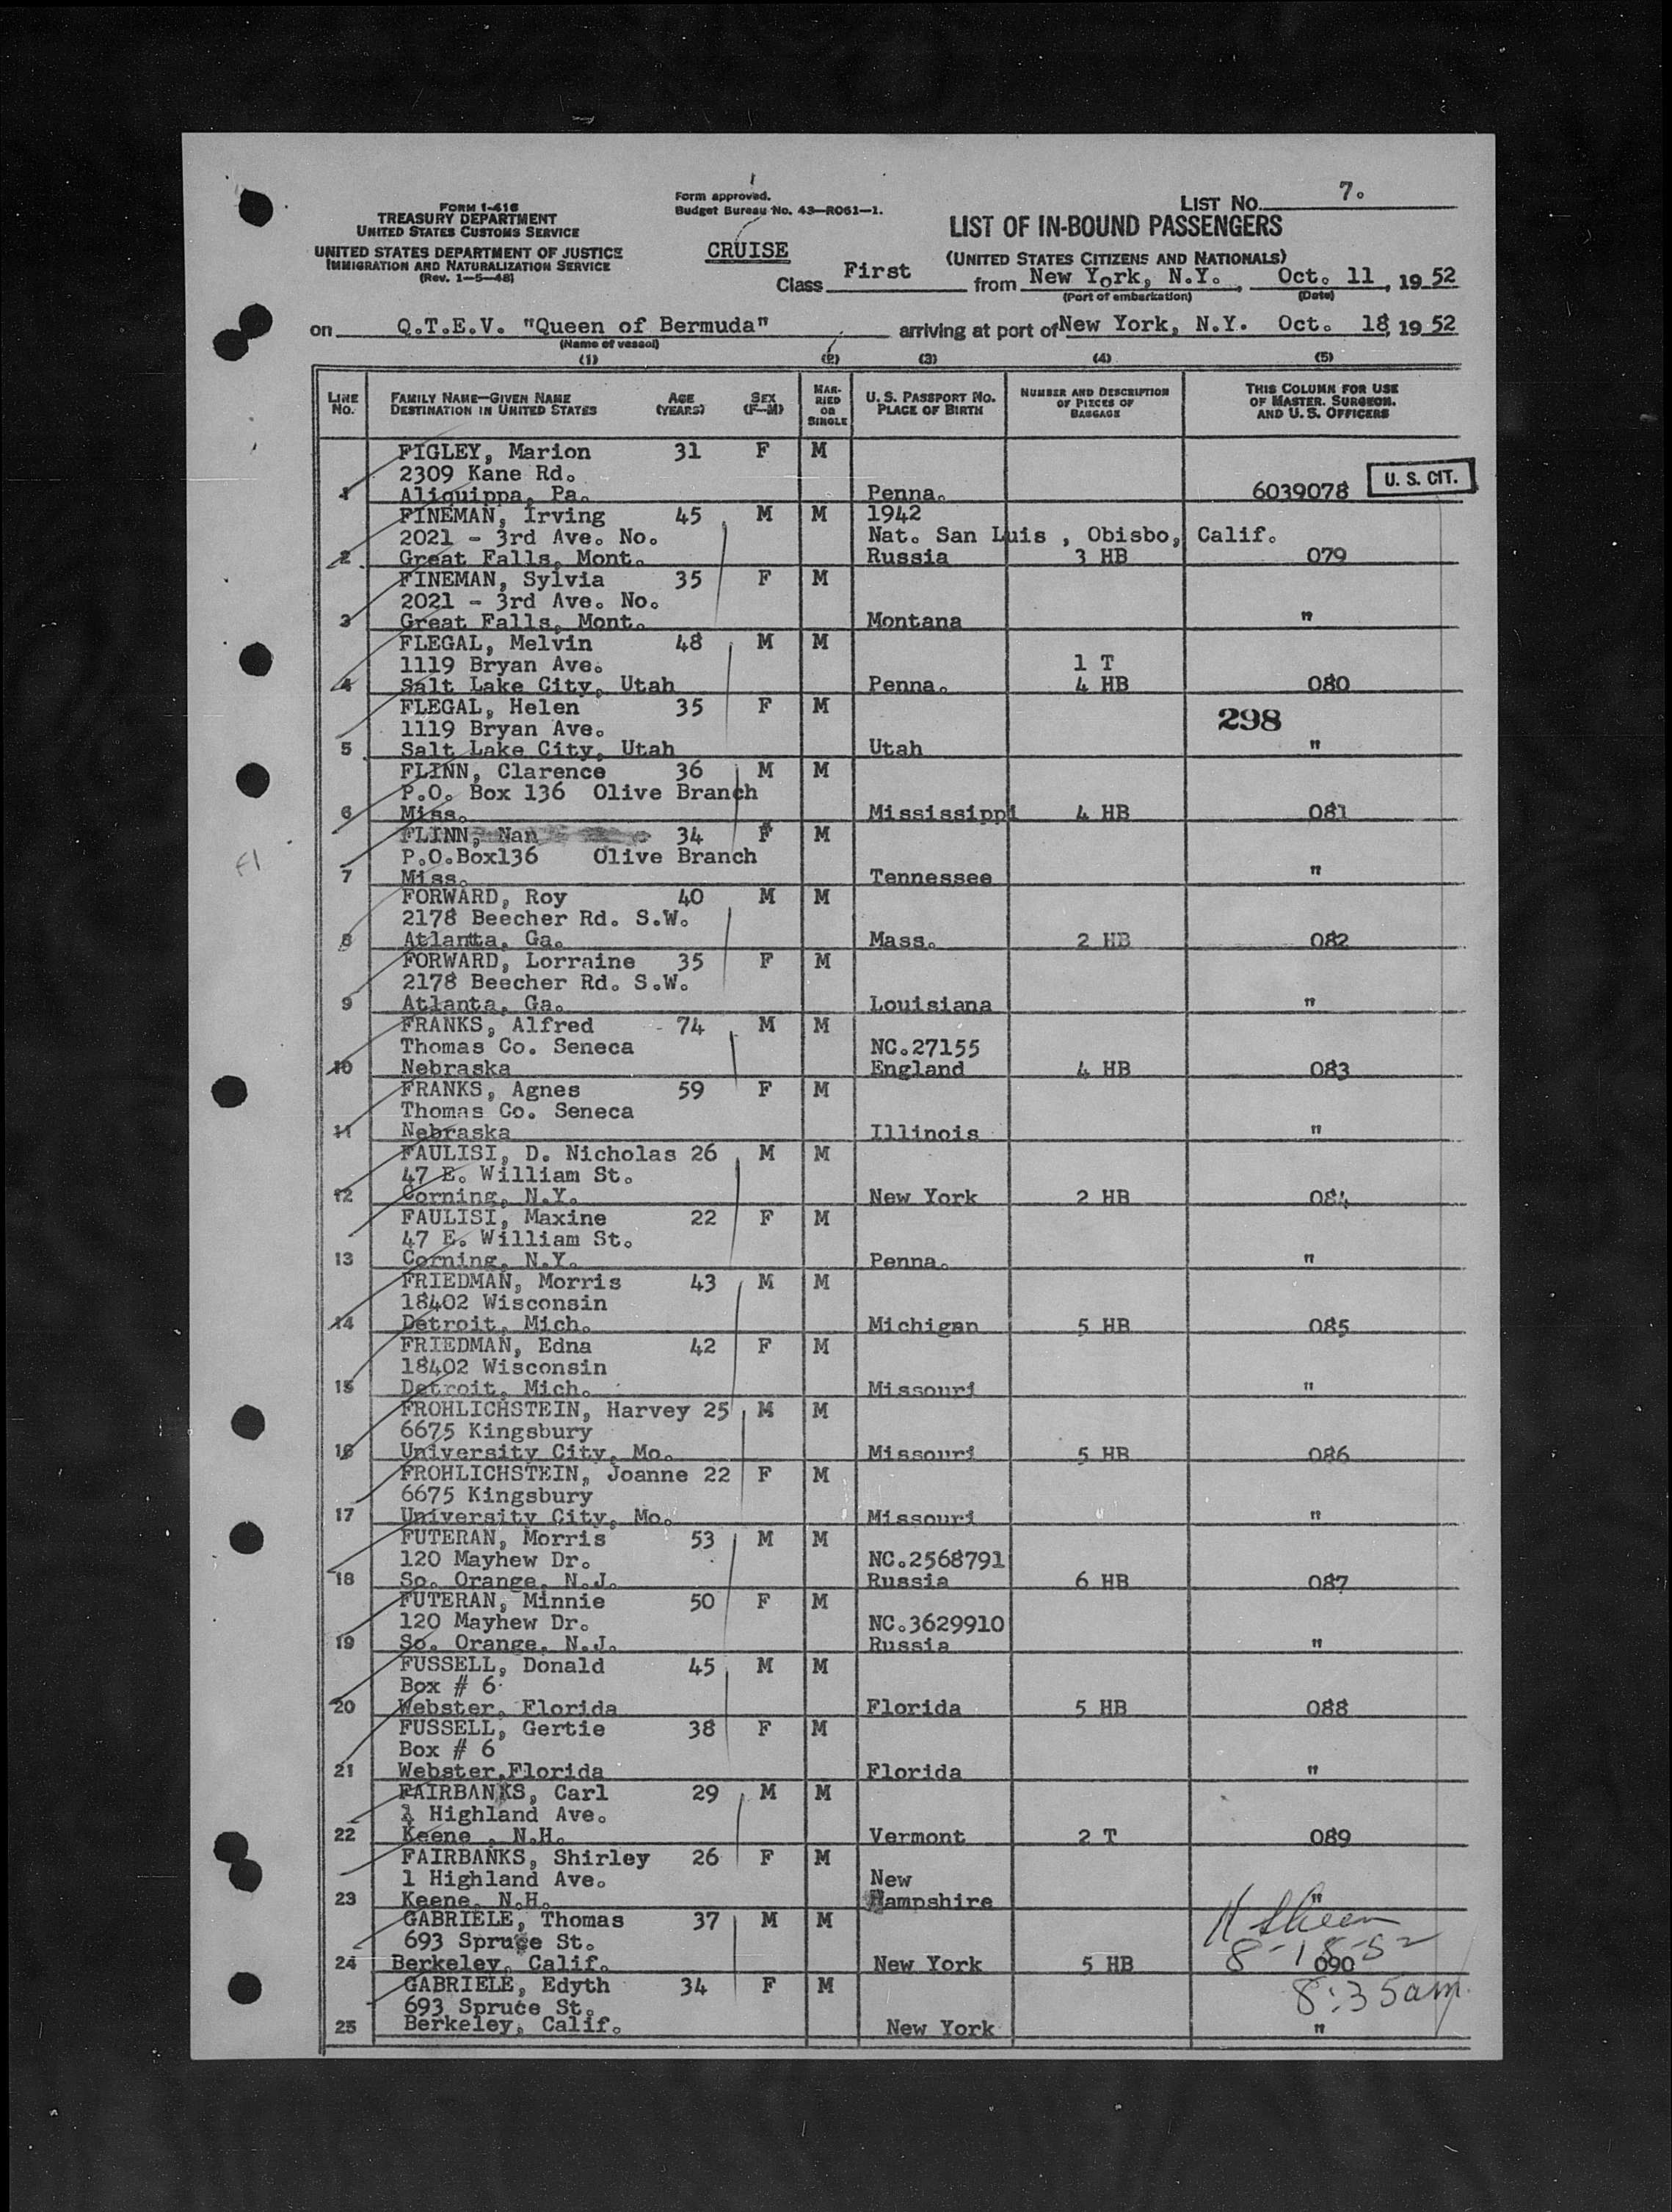 FORM I-416
TREASURY DEPARTMENT
UNITED STATES CUSTOMS SERVICE
UNITED STATES DEPARTMENT OF JUSTICE
IMMIGRATION AND NATURALIZATION SERVICE
(Rev. 1-5-48)
Form approved.
Budget Bureau No. 43-R061-1.
CRUISE
LIST NO. 7.
LIST OF IN-BOUND PASSENGERS
(UNITED STATES CITIZENS AND NATIONALS)
Class First from New York, N.Y., Oct. 11, 19 52
(Port of embarkation) (Date)
on Q.T.E.V. "Queen of Bermuda" arriving at port of New York, N.Y. Oct. 18, 19 52
(Name of vessel)
(1) (2) (3) (4) (5)
LINE NO. FAMILY NAME—GIVEN NAME DESTINATION IN UNITED STATES AGE (YEARS) SEX (F-M) MARRIED OR SINGLE U. S. PASSPORT NO. PLACE OF BIRTH NUMBER AND DESCRIPTION OF PIECES OF BAGGAGE THIS COLUMN FOR USE OF MASTER, SURGEON, AND U. S. OFFICERS
FIGLEY, Marion 31 F M
2309 Kane Rd.
1 Aliquippa, Pa. Penna. 6039078 U. S. CIT.
FINEMAN, Irving 45 M M 1942
2021 - 3rd Ave. No. Nat. San Luis , Obisbo, Calif.
2 Great Falls, Mont. Russia 3 HB 079
FINEMAN, Sylvia 35 F M
2021 - 3rd Ave. No.
3 Great Falls, Mont. Montana "
FLEGAL, Melvin 48 M M
1119 Bryan Ave. 1 T
4 Salt Lake City, Utah Penna. 4 HB 080
FLEGAL, Helen 35 F M
1119 Bryan Ave. 298
5 Salt Lake City, Utah Utah "
FLINN, Clarence 36 M M
P.O. Box 136 Olive Branch
6 Miss. Mississippi 4 HB 081
FLINN, Nan 34 F M
P.O.Box136 Olive Branch
F1
7 Miss. Tennessee "
FORWARD, Roy 40 M M
2178 Beecher Rd. S.W.
8 Atlanta, Ga. Mass. 2 HB 082
FORWARD, Lorraine 35 F M
2178 Beecher Rd. S.W.
9 Atlanta, Ga. Louisiana "
FRANKS, Alfred - 74 M M
Thomas Co. Seneca NC.27155
10 Nebraska England 4 HB 083
FRANKS, Agnes 59 F M
Thomas Co. Seneca
11 Nebraska Illinois "
FAULISI, D. Nicholas 26 M M
47 E. William St.
12 Corning, N.Y. New York 2 HB 084
FAULISI, Maxine 22 F M
47 E. William St.
13 Corning, N.Y. Penna. "
FRIEDMAN, Morris 43 M M
18402 Wisconsin
14 Detroit, Mich. Michigan 5 HB 085
FRIEDMAN, Edna 42 F M
18402 Wisconsin
15 Detroit, Mich. Missouri "
FROHLICHSTEIN, Harvey 25 M M
6675 Kingsbury
16 University City, Mo. Missouri 5 HB 086
FROHLICHSTEIN, Joanne 22 F M
6675 Kingsbury
17 University City, Mo. Missouri "
FUTERAN, Morris 53 M M
120 Mayhew Dr. NC.2568791
18 So. Orange, N.J. Russia 6 HB 087
FUTERAN, Minnie 50 F M
120 Mayhew Dr. NC.3629910
19 So. Orange, N.J. Russia "
FUSSELL, Donald 45 M M
Box # 6
20 Webster, Florida Florida 5 HB 088
FUSSELL, Gertie 38 F M
Box # 6
21 Webster,Florida Florida "
FAIRBANKS, Carl 29 M M
1 Highland Ave.
22 Keene , N.H. Vermont 2 T 089
FAIRBANKS, Shirley 26 F M
1 Highland Ave. New
23 Keene, N.H. Hampshire "
GABRIELE, Thomas 37 M M
693 Spruce St. 8-18-52
24 Berkeley, Calif. New York 5 HB 090
GABRIELE, Edyth 34 F M 8:35am
693 Spruce St.
25 Berkeley, Calif. New York "